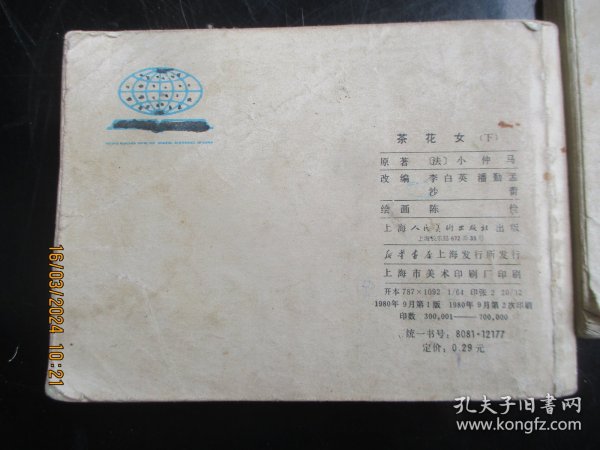 茶花女（下）
原著 〔法〕小仲马
改编 李白英 潘勤孟
绘画 陈俭
上海人民美术出版社出版
上海长乐路672弄33号
新华书店上海发行所发行
上海市美术印刷厂印刷
开本 787×1092 1/64 印张 2 20/32
1980年9月第1版 1980年9月第2次印刷
印数 300,001——700,000
统一书号：8081·12177
定价：0.29元
16/03/2024 10:21
孔夫子旧书网
www.kongfz.com